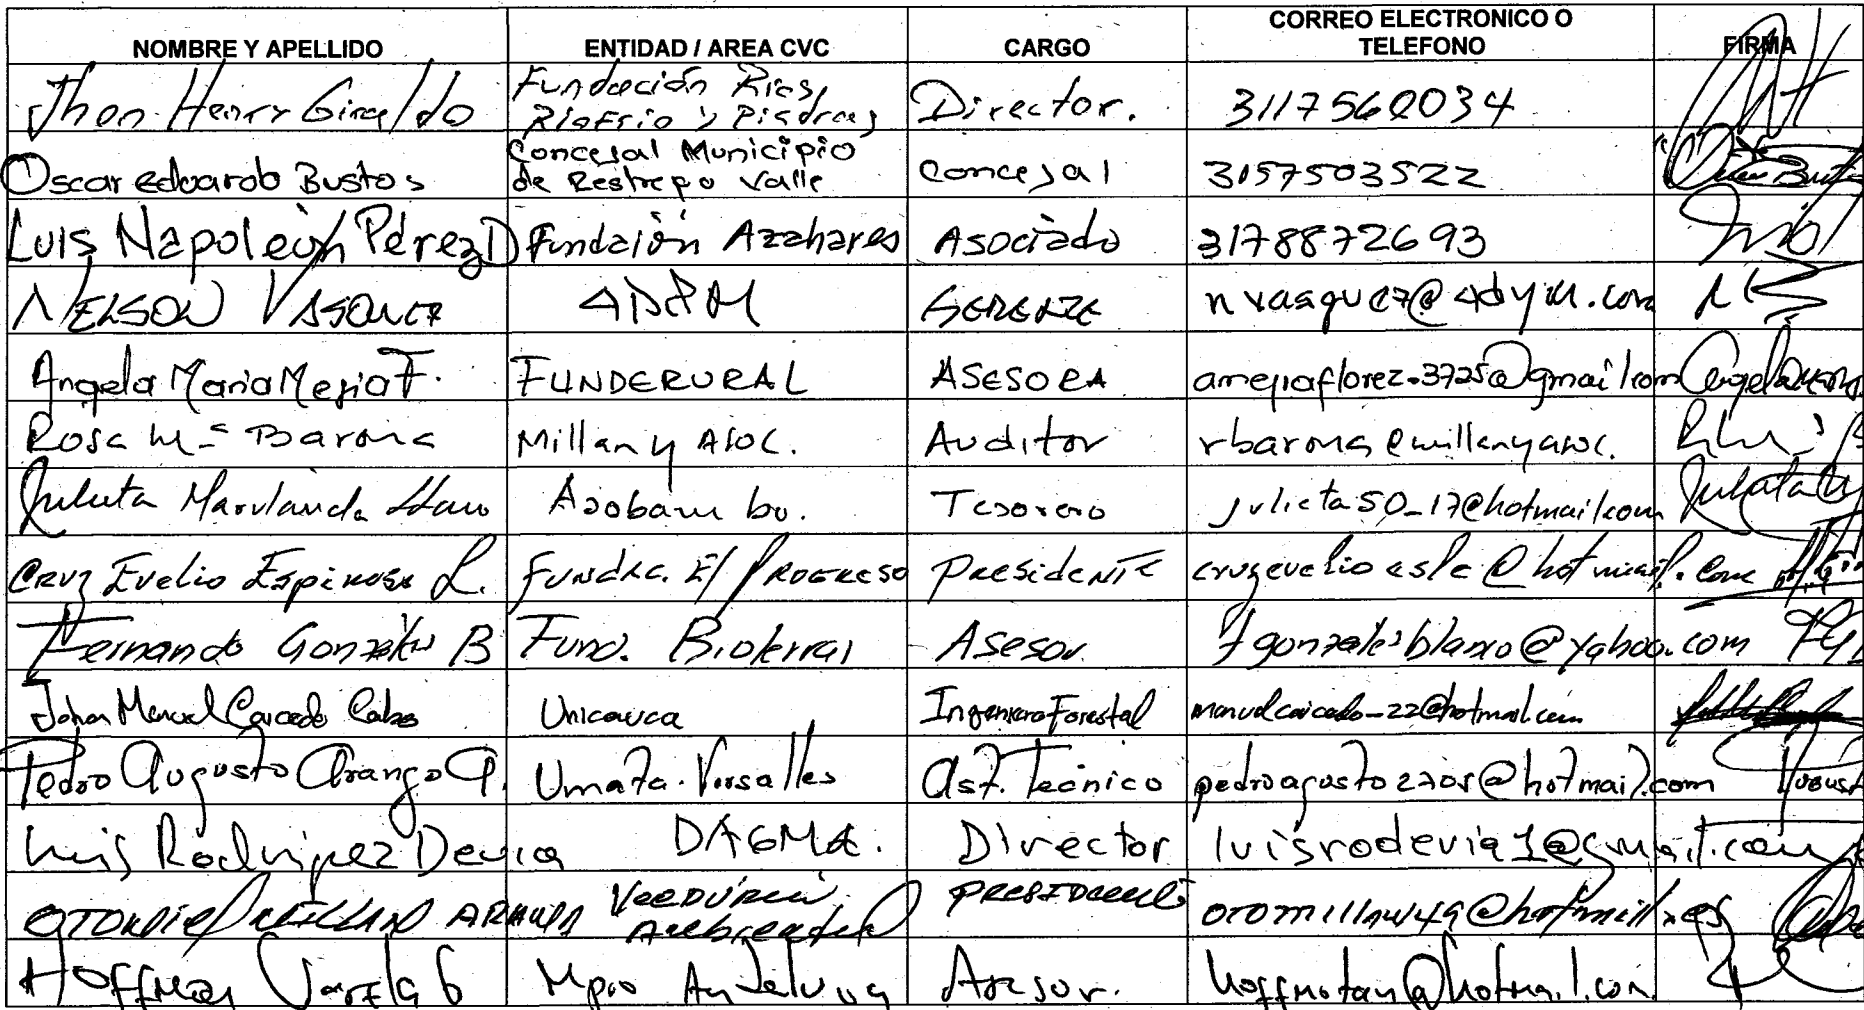 NOMBRE Y APELLIDO ENTIDAD / AREA CVC CARGO CORREO ELECTRONICO O TELEFONO FIRMA
Jhon Henry Giraldo Fundación Rios, Riofrio y Piedras, Director. 3117560034
Oscar edoarob Bustos Concejal Municipio de Restrepo Valle concejal 3157503522
Luis Napoleón Pérez D Fundaión Azahares Asociado 3178872693
NELSON VASQUEZ GERENTE
Angela Maria Mejia F. FUNDERURAL ASESORA amejiaflorez.3725@gmail.com
Rosa Mª Barona Millan y Asoc. Auditor rbarona@millanyasoc.
Julieta Marulanda Asobambu. Tesorero julieta50_17@hotmail.com
CRUZ Evelio Espinosa L. FUNDAC. El PROGRESO PRESIDENTE cruzevelioesle@hotmail.com
Fernando González B Fund. Asesor. fgonzalesblanco@yahoo.com
Johan Manuel Caicedo Unicauca Ingeniero Forestal manuelcaicedo_22@hotmail.com
Pedro Augusto Arango A. Umata. Versalles Ast. Tecnico pedroagusto2705@hotmail.com
Luis Rodriguez Devia DAGMA. Director luisrodevia1@gmail.com
OTONIEL MILLAN VEEDURIA Ambiental PRESIDENTE otomillan49@hotmail.es
Hoffman Varela G Mpio Andalucia Asesor. hoffmotan@hotmail.com